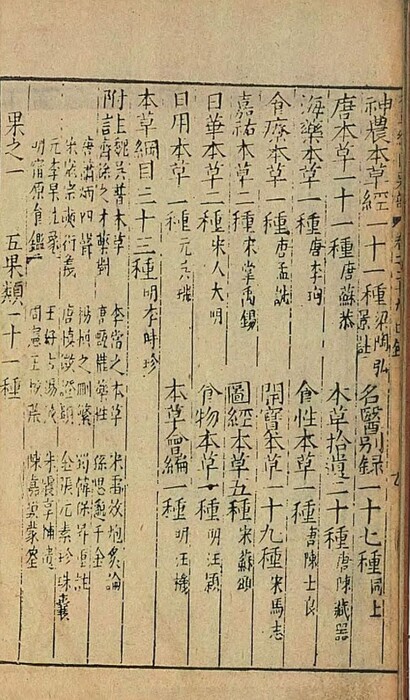 神農本草經一十一種梁陶弘景註 名醫別錄一十七種同上
唐本草一十一種唐蘇恭 本草拾遺二十種唐陳藏器
海藥本草一種唐李珣 食性本草一種唐陳士良
食療本草一種唐孟詵 開寶本草一十九種宋馬志
嘉祐本草二種宋掌禹錫 圖經本草五種宋蘇頌
日華本草二種宋人大明 食物本草一種明汪穎
日用本草一種元吳瑞 本草會編一種明汪機
本草綱目三十三種明李時珍
附註魏吳普本草 李當之本草 宋雷斆炮炙論
齊徐之才藥對 唐甄權藥性 孫思邈千金
唐蕭炳四聲 楊損之刪繁 蜀韓保昇重註
宋寇宗奭衍義 唐慎微證類 金張元素珍珠囊
元李杲法象 王好古湯液 朱震亨補遺
明甯原食鑑 周憲王救荒 陳嘉謨蒙筌
果之一 五果類一十一種